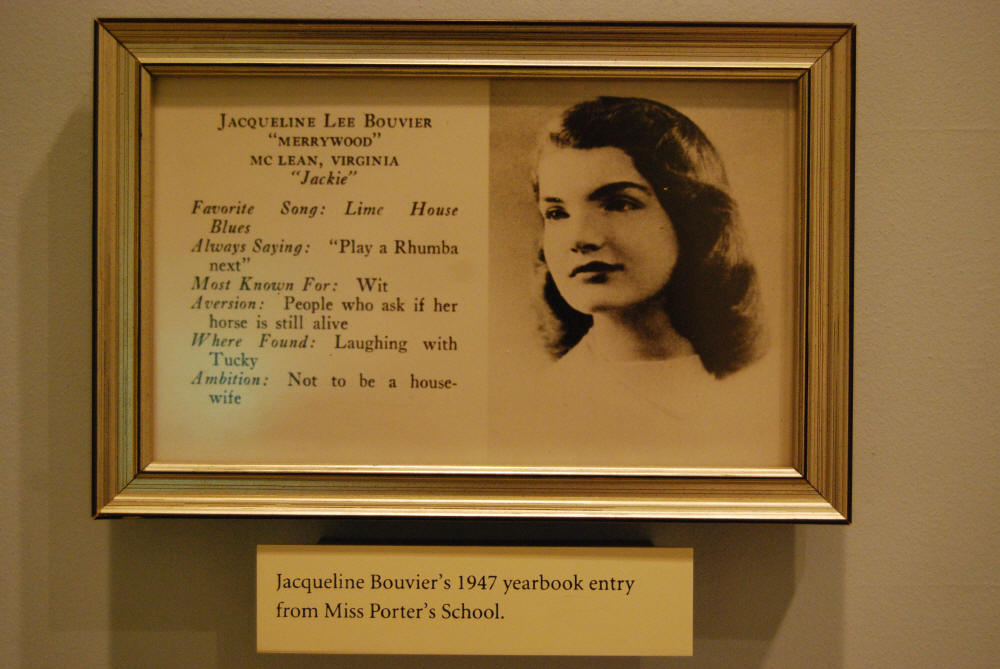 JACQUELINE LEE BOUVIER
"MERRYWOOD"
MC LEAN, VIRGINIA
"Jackie"
Favorite Song: Lime House
Blues
Always Saying: "Play a Rhumba
next"
Most Known For: Wit
Aversion: People who ask if her
horse is still alive
Where Found: Laughing with
Tucky
Ambition: Not to be a house-
wife
Jacqueline Bouvier's 1947 yearbook entry
from Miss Porter's School.